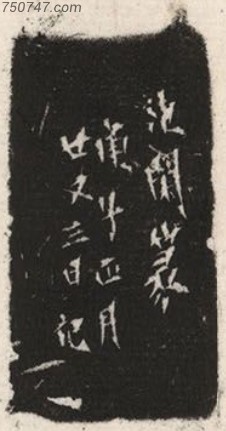 750747.com
篆
庚午正月
廿又三日記